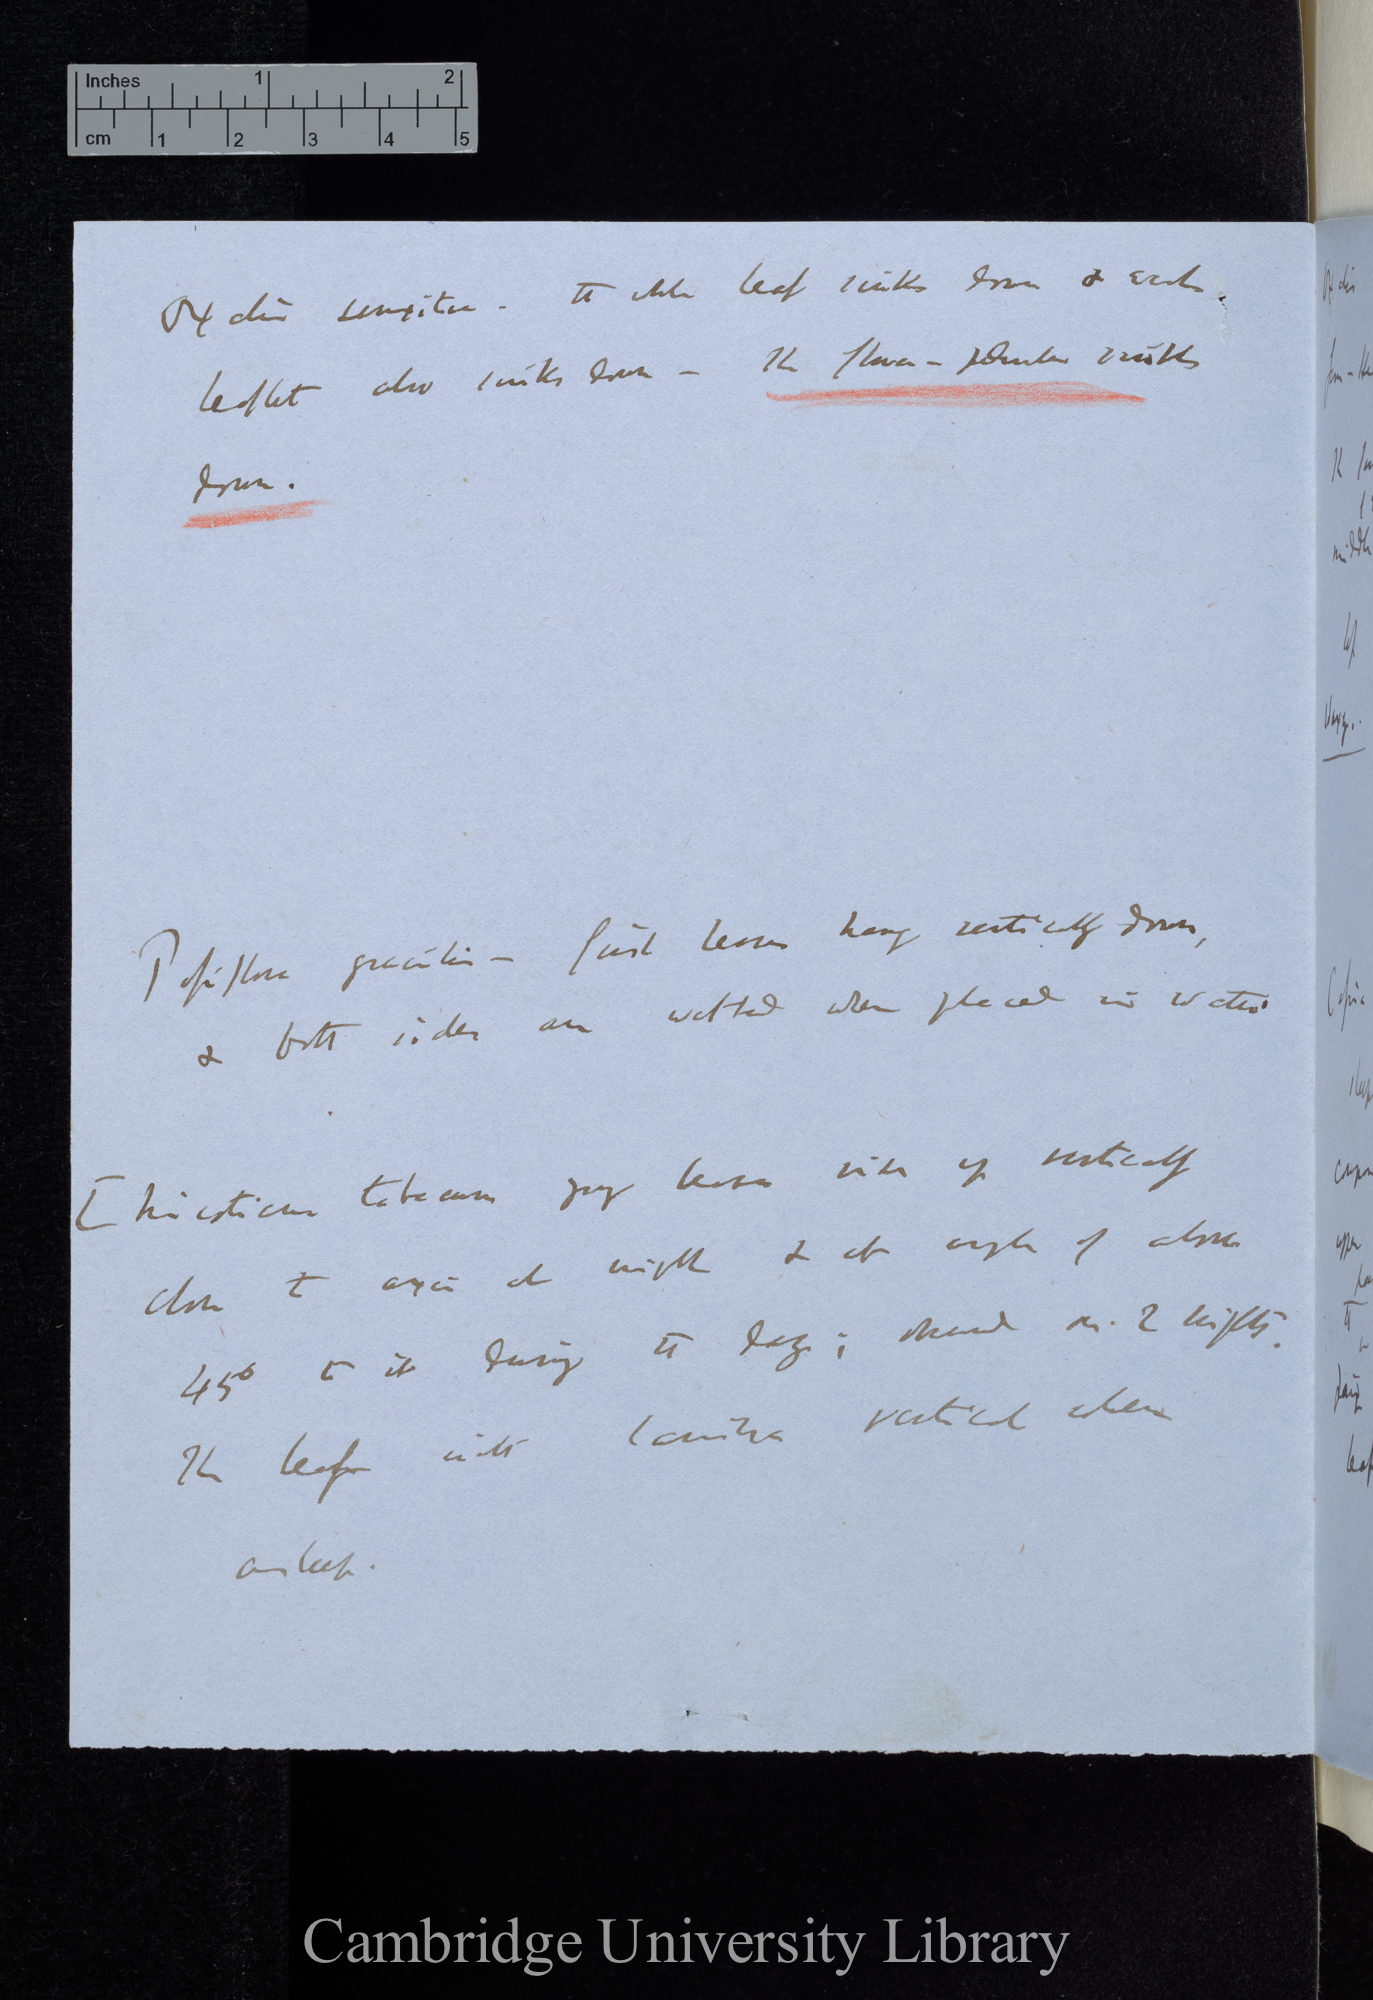 Inches 1 2
cm 1 2 3 4 5
Oxalis sensitiva - the whole leaf sinks down & each
leaflet also sinks down - The flower-peduncle sinks
down.
Passiflora gracilis - first leaves hang vertically down,
& both sides are wetted when placed in water
[Nicotiana tabacum young leaves rise up vertically
close to axis at night & at angle of about
45° to it during the day; observed on 2 nights.
The leaf lamina vertical when
asleep.
Cambridge University Library